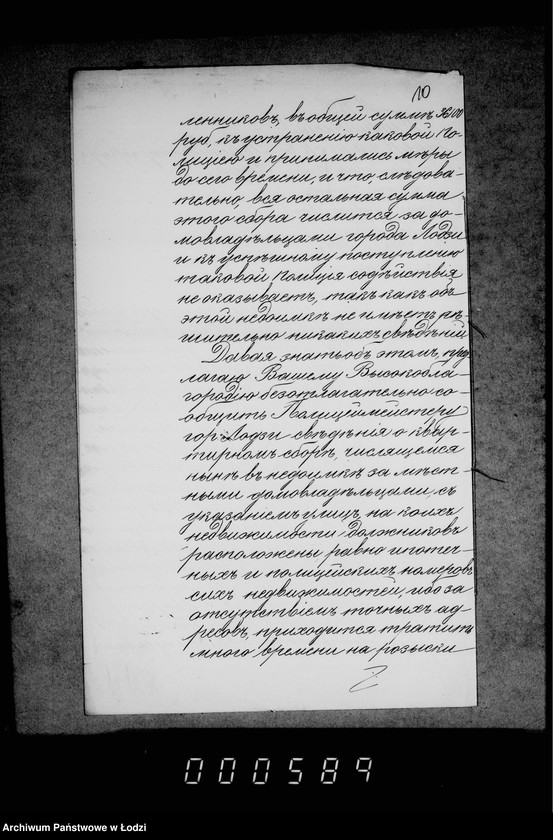 10
ленниковъ, въ общей суммѣ 36100
руб., къ устраненію каковой По-
лиціею и принимались мѣры
до сего времени, и что, слѣдова-
тельно, вся остальная сумма
этого сбора числится за до-
мовладѣльцами города Лодзи
и къ успѣшному поступленію
таковой Полиція содѣйствія
не оказываетъ, такъ какъ объ
этой недоимкѣ не имѣетъ рѣ-
шительно никакихъ свѣдѣній
Давая знать объ этомъ, пред-
лагаю Вашему Высокобла-
городію безотлагательно со-
общить Полицеймейстеру
гор. Лодзи свѣдѣнія о квар-
тирномъ сборѣ, числящемся
нынѣ въ недоимкѣ за мѣст-
ными домовладѣльцами, съ
указаніемъ улицъ, на коихъ
недвижимости должниковъ
расположены, равно ипотеч-
ныхъ и полицейскихъ номеровъ
сихъ недвижимостей, ибо за
отсутствіемъ точныхъ ад-
ресовъ, приходится тратить
много времени на розыски
000589
Archiwum Państwowe w Łodzi